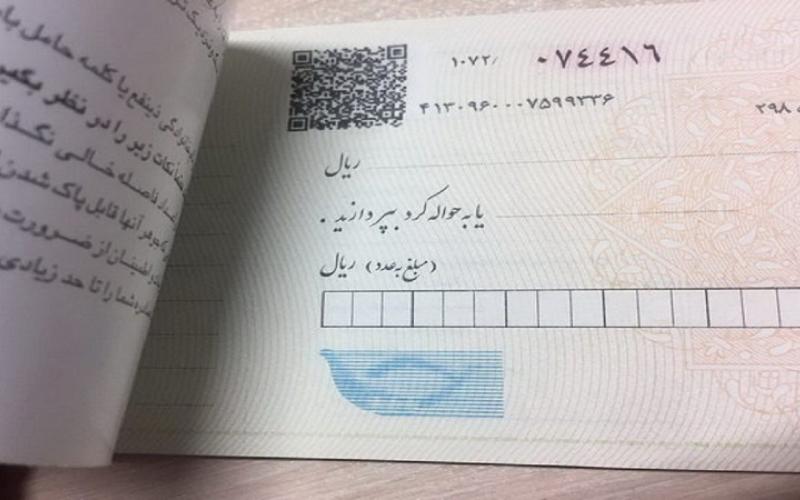 ۱۰۷۲/ ۰۷٤٤۱٦
۴۱۳۰۹۶۰۰۰۷۵۹۹۳۳۶
۲۹۸
ریال
یا به حواله کرد بپردازید .
(مبلغ به عدد) ریال
ذینفع یا کلمه حامل
نکات زیر را در نظر بگیر
فاصله خالی نگذا
آنها قابل پاک شدن
اطمینان از ضرورت
شما را تا حد زیادی